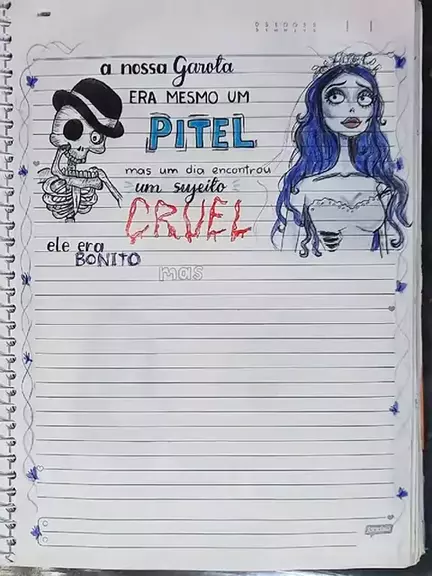 a nossa Garota
ERA MESMO UM
PITEL
mas um dia encontrou
um sujeito
CRUEL
ele era
BONITO
mas